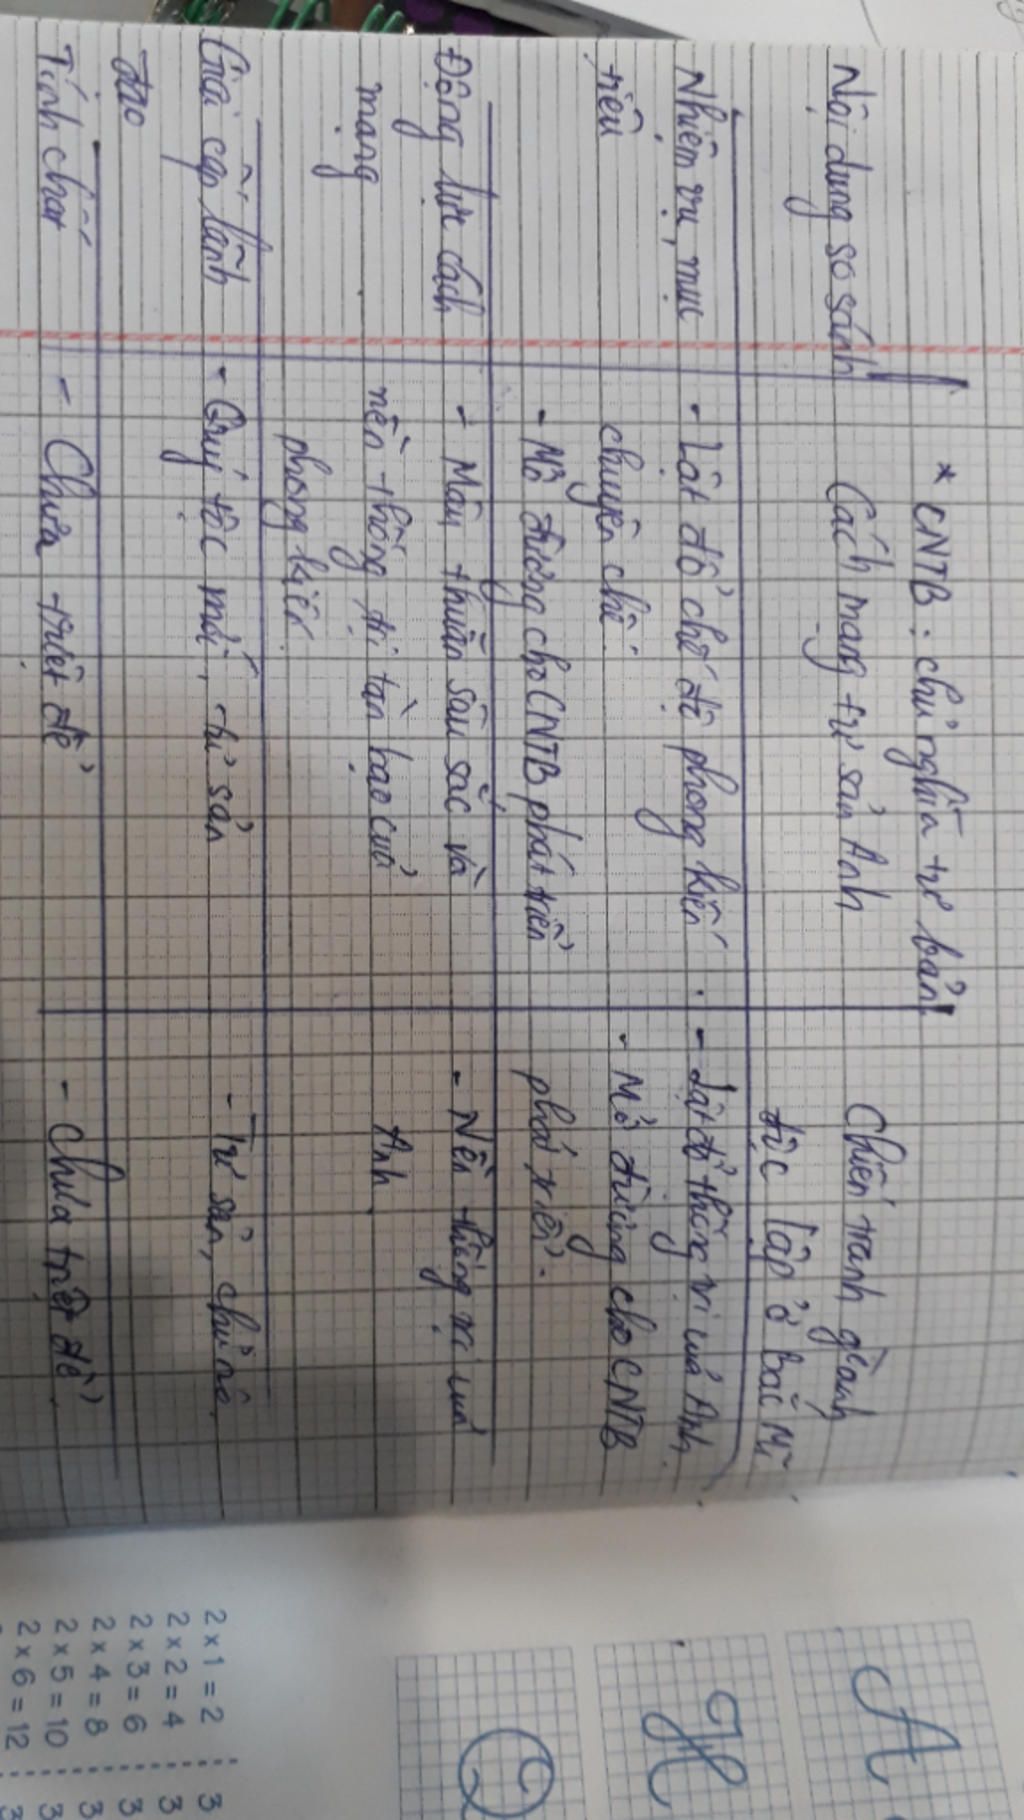 * CNTB : chủ nghĩa tư bản
Nội dung so sánh
Cách mạng tư sản Anh
Chiến tranh giành
độc lập ở Bắc Mĩ
Nhiệm vụ, mục
tiêu
- Lật đổ chế độ phong kiến
chuyên chế.
- Mở đường cho CNTB phát triển
- Lật đổ thống trị của Anh
- Mở đường cho CNTB
phát triển.
Động lực cách
mạng
- Mâu thuẫn sâu sắc và
nền thống trị tàn bạo của
phong kiến.
- Nền thống trị của
Anh
Giai cấp lãnh
đạo
- Quý tộc mới, tư sản
- Tư sản, chủ nô
Tính chất
- Chưa triệt để
- Chưa triệt để
A
H
Q
2 x 1 = 2
2 x 2 = 4
2 x 3 = 6
2 x 4 = 8
2 x 5 = 10
2 x 6 = 12
3
3
3
3
3
3